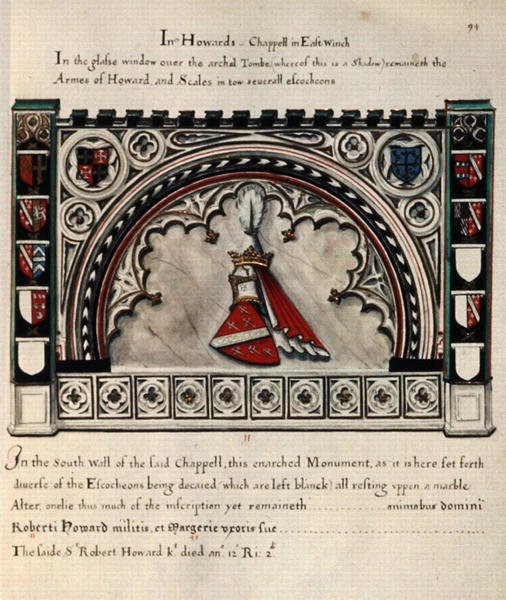 94
In Howards Chappell in East-Winch
In the glasse window ouer the arched Tombe (whereof this is a Shadow) remaineth the
Armes of Howard, and Scales in tow seuerall escocheons
11
In the South Wall of the said Chappell, this enarched Monument, as it is here set forth
diuerse of the Escocheons being decaied (which are left blanck) all resting vppon a marble
Alter, onelie thus much of the inscription yet remaineth .............. animabus domini
Roberti Howard militis, et Margerie vxoris sue ..............
The saide Sr Robert Howard kt died ano 12o Ri: 2d